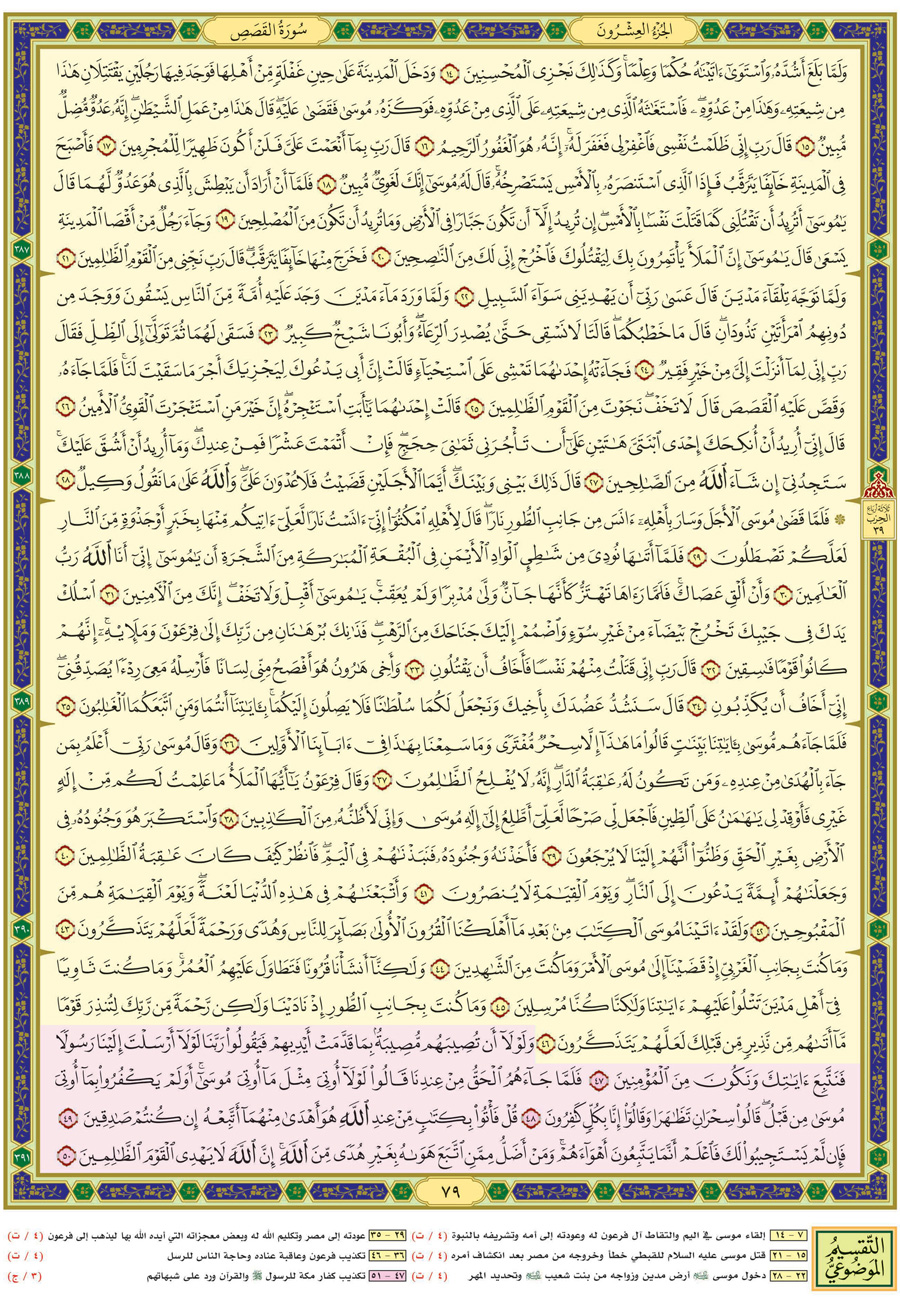 الجُزْءُ العِشْرُونَ
سُورَةُ القَصَصِ
وَلَمَّا بَلَغَ أَشُدَّهُۥ وَٱسْتَوَىٰٓ ءَاتَيْنَٰهُ حُكْمًا وَعِلْمًاۚ وَكَذَٰلِكَ نَجْزِى ٱلْمُحْسِنِينَ ١٤ وَدَخَلَ ٱلْمَدِينَةَ عَلَىٰ حِينِ غَفْلَةٍ مِّنْ أَهْلِهَا فَوَجَدَ فِيهَا رَجُلَيْنِ يَقْتَتِلَانِ هَٰذَا
مِن شِيعَتِهِۦ وَهَٰذَا مِنْ عَدُوِّهِۦۖ فَٱسْتَغَٰثَهُ ٱلَّذِى مِن شِيعَتِهِۦ عَلَى ٱلَّذِى مِنْ عَدُوِّهِۦ فَوَكَزَهُۥ مُوسَىٰ فَقَضَىٰ عَلَيْهِۖ قَالَ هَٰذَا مِنْ عَمَلِ ٱلشَّيْطَٰنِۖ إِنَّهُۥ عَدُوٌّ مُّضِلٌّ
مُّبِينٌ ١٥ قَالَ رَبِّ إِنِّى ظَلَمْتُ نَفْسِى فَٱغْفِرْ لِى فَغَفَرَ لَهُۥٓۚ إِنَّهُۥ هُوَ ٱلْغَفُورُ ٱلرَّحِيمُ ١٦ قَالَ رَبِّ بِمَآ أَنْعَمْتَ عَلَىَّ فَلَنْ أَكُونَ ظَهِيرًا لِّلْمُجْرِمِينَ ١٧ فَأَصْبَحَ
فِى ٱلْمَدِينَةِ خَآئِفًا يَتَرَقَّبُ فَإِذَا ٱلَّذِى ٱسْتَنصَرَهُۥ بِٱلْأَمْسِ يَسْتَصْرِخُهُۥۚ قَالَ لَهُۥ مُوسَىٰٓ إِنَّكَ لَغَوِىٌّ مُّبِينٌ ١٨ فَلَمَّآ أَنْ أَرَادَ أَن يَبْطِشَ بِٱلَّذِى هُوَ عَدُوٌّ لَّهُمَا قَالَ
يَٰمُوسَىٰٓ أَتُرِيدُ أَن تَقْتُلَنِى كَمَا قَتَلْتَ نَفْسًۢا بِٱلْأَمْسِۖ إِن تُرِيدُ إِلَّآ أَن تَكُونَ جَبَّارًا فِى ٱلْأَرْضِ وَمَا تُرِيدُ أَن تَكُونَ مِنَ ٱلْمُصْلِحِينَ ١٩ وَجَآءَ رَجُلٌ مِّنْ أَقْصَا ٱلْمَدِينَةِ
يَسْعَىٰ قَالَ يَٰمُوسَىٰٓ إِنَّ ٱلْمَلَأَ يَأْتَمِرُونَ بِكَ لِيَقْتُلُوكَ فَٱخْرُجْ إِنِّى لَكَ مِنَ ٱلنَّٰصِحِينَ ٢٠ فَخَرَجَ مِنْهَا خَآئِفًا يَتَرَقَّبُۖ قَالَ رَبِّ نَجِّنِى مِنَ ٱلْقَوْمِ ٱلظَّٰلِمِينَ ٢١
وَلَمَّا تَوَجَّهَ تِلْقَآءَ مَدْيَنَ قَالَ عَسَىٰ رَبِّىٓ أَن يَهْدِيَنِى سَوَآءَ ٱلسَّبِيلِ ٢٢ وَلَمَّا وَرَدَ مَآءَ مَدْيَنَ وَجَدَ عَلَيْهِ أُمَّةً مِّنَ ٱلنَّاسِ يَسْقُونَ وَوَجَدَ مِن
دُونِهِمُ ٱمْرَأَتَيْنِ تَذُودَانِۖ قَالَ مَا خَطْبُكُمَاۖ قَالَتَا لَا نَسْقِى حَتَّىٰ يُصْدِرَ ٱلرِّعَآءُۖ وَأَبُونَا شَيْخٌ كَبِيرٌ ٢٣ فَسَقَىٰ لَهُمَا ثُمَّ تَوَلَّىٰٓ إِلَى ٱلظِّلِّ فَقَالَ
رَبِّ إِنِّى لِمَآ أَنزَلْتَ إِلَىَّ مِنْ خَيْرٍ فَقِيرٌ ٢٤ فَجَآءَتْهُ إِحْدَىٰهُمَا تَمْشِى عَلَى ٱسْتِحْيَآءٍ قَالَتْ إِنَّ أَبِى يَدْعُوكَ لِيَجْزِيَكَ أَجْرَ مَا سَقَيْتَ لَنَاۚ فَلَمَّا جَآءَهُۥ
وَقَصَّ عَلَيْهِ ٱلْقَصَصَ قَالَ لَا تَخَفْۖ نَجَوْتَ مِنَ ٱلْقَوْمِ ٱلظَّٰلِمِينَ ٢٥ قَالَتْ إِحْدَىٰهُمَا يَٰٓأَبَتِ ٱسْتَـْٔجِرْهُۖ إِنَّ خَيْرَ مَنِ ٱسْتَـْٔجَرْتَ ٱلْقَوِىُّ ٱلْأَمِينُ ٢٦
قَالَ إِنِّىٓ أُرِيدُ أَنْ أُنكِحَكَ إِحْدَى ٱبْنَتَىَّ هَٰتَيْنِ عَلَىٰٓ أَن تَأْجُرَنِى ثَمَٰنِىَ حِجَجٍۖ فَإِنْ أَتْمَمْتَ عَشْرًا فَمِنْ عِندِكَۖ وَمَآ أُرِيدُ أَنْ أَشُقَّ عَلَيْكَۚ
سَتَجِدُنِىٓ إِن شَآءَ ٱللَّهُ مِنَ ٱلصَّٰلِحِينَ ٢٧ قَالَ ذَٰلِكَ بَيْنِى وَبَيْنَكَۖ أَيَّمَا ٱلْأَجَلَيْنِ قَضَيْتُ فَلَا عُدْوَٰنَ عَلَىَّۖ وَٱللَّهُ عَلَىٰ مَا نَقُولُ وَكِيلٌ ٢٨
۞ فَلَمَّا قَضَىٰ مُوسَى ٱلْأَجَلَ وَسَارَ بِأَهْلِهِۦٓ ءَانَسَ مِن جَانِبِ ٱلطُّورِ نَارًاۖ قَالَ لِأَهْلِهِ ٱمْكُثُوٓا۟ إِنِّىٓ ءَانَسْتُ نَارًا لَّعَلِّىٓ ءَاتِيكُم مِّنْهَا بِخَبَرٍ أَوْ جَذْوَةٍ مِّنَ ٱلنَّارِ
لَعَلَّكُمْ تَصْطَلُونَ ٢٩ فَلَمَّآ أَتَىٰهَا نُودِىَ مِن شَٰطِئِ ٱلْوَادِ ٱلْأَيْمَنِ فِى ٱلْبُقْعَةِ ٱلْمُبَٰرَكَةِ مِنَ ٱلشَّجَرَةِ أَن يَٰمُوسَىٰٓ إِنِّىٓ أَنَا ٱللَّهُ رَبُّ
ٱلْعَٰلَمِينَ ٣٠ وَأَنْ أَلْقِ عَصَاكَۚ فَلَمَّا رَءَاهَا تَهْتَزُّ كَأَنَّهَا جَآنٌّ وَلَّىٰ مُدْبِرًا وَلَمْ يُعَقِّبْۚ يَٰمُوسَىٰٓ أَقْبِلْ وَلَا تَخَفْۖ إِنَّكَ مِنَ ٱلْـَٔامِنِينَ ٣١ ٱسْلُكْ
يَدَكَ فِى جَيْبِكَ تَخْرُجْ بَيْضَآءَ مِنْ غَيْرِ سُوٓءٍ وَٱضْمُمْ إِلَيْكَ جَنَاحَكَ مِنَ ٱلرَّهْبِۖ فَذَٰنِكَ بُرْهَٰنَانِ مِن رَّبِّكَ إِلَىٰ فِرْعَوْنَ وَمَلَإِي۟هِۦٓۚ إِنَّهُمْ
كَانُوا۟ قَوْمًا فَٰسِقِينَ ٣٢ قَالَ رَبِّ إِنِّى قَتَلْتُ مِنْهُمْ نَفْسًا فَأَخَافُ أَن يَقْتُلُونِ ٣٣ وَأَخِى هَٰرُونُ هُوَ أَفْصَحُ مِنِّى لِسَانًا فَأَرْسِلْهُ مَعِىَ رِدْءًا يُصَدِّقُنِىٓۖ
إِنِّىٓ أَخَافُ أَن يُكَذِّبُونِ ٣٤ قَالَ سَنَشُدُّ عَضُدَكَ بِأَخِيكَ وَنَجْعَلُ لَكُمَا سُلْطَٰنًا فَلَا يَصِلُونَ إِلَيْكُمَاۚ بِـَٔايَٰتِنَآ أَنتُمَا وَمَنِ ٱتَّبَعَكُمَا ٱلْغَٰلِبُونَ ٣٥
فَلَمَّا جَآءَهُم مُّوسَىٰ بِـَٔايَٰتِنَا بَيِّنَٰتٍ قَالُوا۟ مَا هَٰذَآ إِلَّا سِحْرٌ مُّفْتَرًى وَمَا سَمِعْنَا بِهَٰذَا فِىٓ ءَابَآئِنَا ٱلْأَوَّلِينَ ٣٦ وَقَالَ مُوسَىٰ رَبِّىٓ أَعْلَمُ بِمَن
جَآءَ بِٱلْهُدَىٰ مِنْ عِندِهِۦ وَمَن تَكُونُ لَهُۥ عَٰقِبَةُ ٱلدَّارِۖ إِنَّهُۥ لَا يُفْلِحُ ٱلظَّٰلِمُونَ ٣٧ وَقَالَ فِرْعَوْنُ يَٰٓأَيُّهَا ٱلْمَلَأُ مَا عَلِمْتُ لَكُم مِّنْ إِلَٰهٍ
غَيْرِى فَأَوْقِدْ لِى يَٰهَٰمَٰنُ عَلَى ٱلطِّينِ فَٱجْعَل لِّى صَرْحًا لَّعَلِّىٓ أَطَّلِعُ إِلَىٰٓ إِلَٰهِ مُوسَىٰ وَإِنِّى لَأَظُنُّهُۥ مِنَ ٱلْكَٰذِبِينَ ٣٨ وَٱسْتَكْبَرَ هُوَ وَجُنُودُهُۥ فِى
ٱلْأَرْضِ بِغَيْرِ ٱلْحَقِّ وَظَنُّوٓا۟ أَنَّهُمْ إِلَيْنَا لَا يُرْجَعُونَ ٣٩ فَأَخَذْنَٰهُ وَجُنُودَهُۥ فَنَبَذْنَٰهُمْ فِى ٱلْيَمِّۖ فَٱنظُرْ كَيْفَ كَانَ عَٰقِبَةُ ٱلظَّٰلِمِينَ ٤٠
وَجَعَلْنَٰهُمْ أَئِمَّةً يَدْعُونَ إِلَى ٱلنَّارِۖ وَيَوْمَ ٱلْقِيَٰمَةِ لَا يُنصَرُونَ ٤١ وَأَتْبَعْنَٰهُمْ فِى هَٰذِهِ ٱلدُّنْيَا لَعْنَةًۖ وَيَوْمَ ٱلْقِيَٰمَةِ هُم مِّنَ
ٱلْمَقْبُوحِينَ ٤٢ وَلَقَدْ ءَاتَيْنَا مُوسَى ٱلْكِتَٰبَ مِنۢ بَعْدِ مَآ أَهْلَكْنَا ٱلْقُرُونَ ٱلْأُولَىٰ بَصَآئِرَ لِلنَّاسِ وَهُدًى وَرَحْمَةً لَّعَلَّهُمْ يَتَذَكَّرُونَ ٤٣
وَمَا كُنتَ بِجَانِبِ ٱلْغَرْبِىِّ إِذْ قَضَيْنَآ إِلَىٰ مُوسَى ٱلْأَمْرَ وَمَا كُنتَ مِنَ ٱلشَّٰهِدِينَ ٤٤ وَلَٰكِنَّآ أَنشَأْنَا قُرُونًا فَتَطَاوَلَ عَلَيْهِمُ ٱلْعُمُرُۚ وَمَا كُنتَ ثَاوِيًا
فِىٓ أَهْلِ مَدْيَنَ تَتْلُوا۟ عَلَيْهِمْ ءَايَٰتِنَا وَلَٰكِنَّا كُنَّا مُرْسِلِينَ ٤٥ وَمَا كُنتَ بِجَانِبِ ٱلطُّورِ إِذْ نَادَيْنَا وَلَٰكِن رَّحْمَةً مِّن رَّبِّكَ لِتُنذِرَ قَوْمًا
مَّآ أَتَىٰهُم مِّن نَّذِيرٍ مِّن قَبْلِكَ لَعَلَّهُمْ يَتَذَكَّرُونَ ٤٦ وَلَوْلَآ أَن تُصِيبَهُم مُّصِيبَةٌۢ بِمَا قَدَّمَتْ أَيْدِيهِمْ فَيَقُولُوا۟ رَبَّنَا لَوْلَآ أَرْسَلْتَ إِلَيْنَا رَسُولًا
فَنَتَّبِعَ ءَايَٰتِكَ وَنَكُونَ مِنَ ٱلْمُؤْمِنِينَ ٤٧ فَلَمَّا جَآءَهُمُ ٱلْحَقُّ مِنْ عِندِنَا قَالُوا۟ لَوْلَآ أُوتِىَ مِثْلَ مَآ أُوتِىَ مُوسَىٰٓۚ أَوَلَمْ يَكْفُرُوا۟ بِمَآ أُوتِىَ
مُوسَىٰ مِن قَبْلُۖ قَالُوا۟ سِحْرَانِ تَظَٰهَرَا وَقَالُوٓا۟ إِنَّا بِكُلٍّ كَٰفِرُونَ ٤٨ قُلْ فَأْتُوا۟ بِكِتَٰبٍ مِّنْ عِندِ ٱللَّهِ هُوَ أَهْدَىٰ مِنْهُمَآ أَتَّبِعْهُ إِن كُنتُمْ صَٰدِقِينَ ٤٩
فَإِن لَّمْ يَسْتَجِيبُوا۟ لَكَ فَٱعْلَمْ أَنَّمَا يَتَّبِعُونَ أَهْوَآءَهُمْۚ وَمَنْ أَضَلُّ مِمَّنِ ٱتَّبَعَ هَوَىٰهُ بِغَيْرِ هُدًى مِّنَ ٱللَّهِۚ إِنَّ ٱللَّهَ لَا يَهْدِى ٱلْقَوْمَ ٱلظَّٰلِمِينَ ٥٠
٣٨٧
٣٨٨
٣٨٩
٣٩٠
٣٩١
ثلاثة أرباع
الحزب
٣٩
٧٩
التَّقْسِيمُ
المَوْضُوعِيُّ
٧ - ١٤ إلقاء موسى في اليم والتقاط آل فرعون له وعودته إلى أمه وتشريفه بالنبوة (٤ / ت)
١٥ - ٢١ قتل موسى عليه السلام للقبطي خطأ وخروجه من مصر بعد انكشاف أمره (٤ / ت)
٢٢ - ٢٨ دخول موسى ﷺ أرض مدين وزواجه من بنت شعيب ﷺ وتحديد المهر (٤ / ت)
٢٩ - ٣٥ عودته إلى مصر وتكليم الله له وبعض معجزاته التي أيده الله بها ليذهب إلى فرعون (٤ / ت)
٣٦ - ٤٦ تكذيب فرعون وعاقبة عناده وحاجة الناس للرسل (٤ / ت)
٤٧ - ٥١ تكذيب كفار مكة للرسول ﷺ والقرآن ورد على شبهاتهم (٣ / ج)